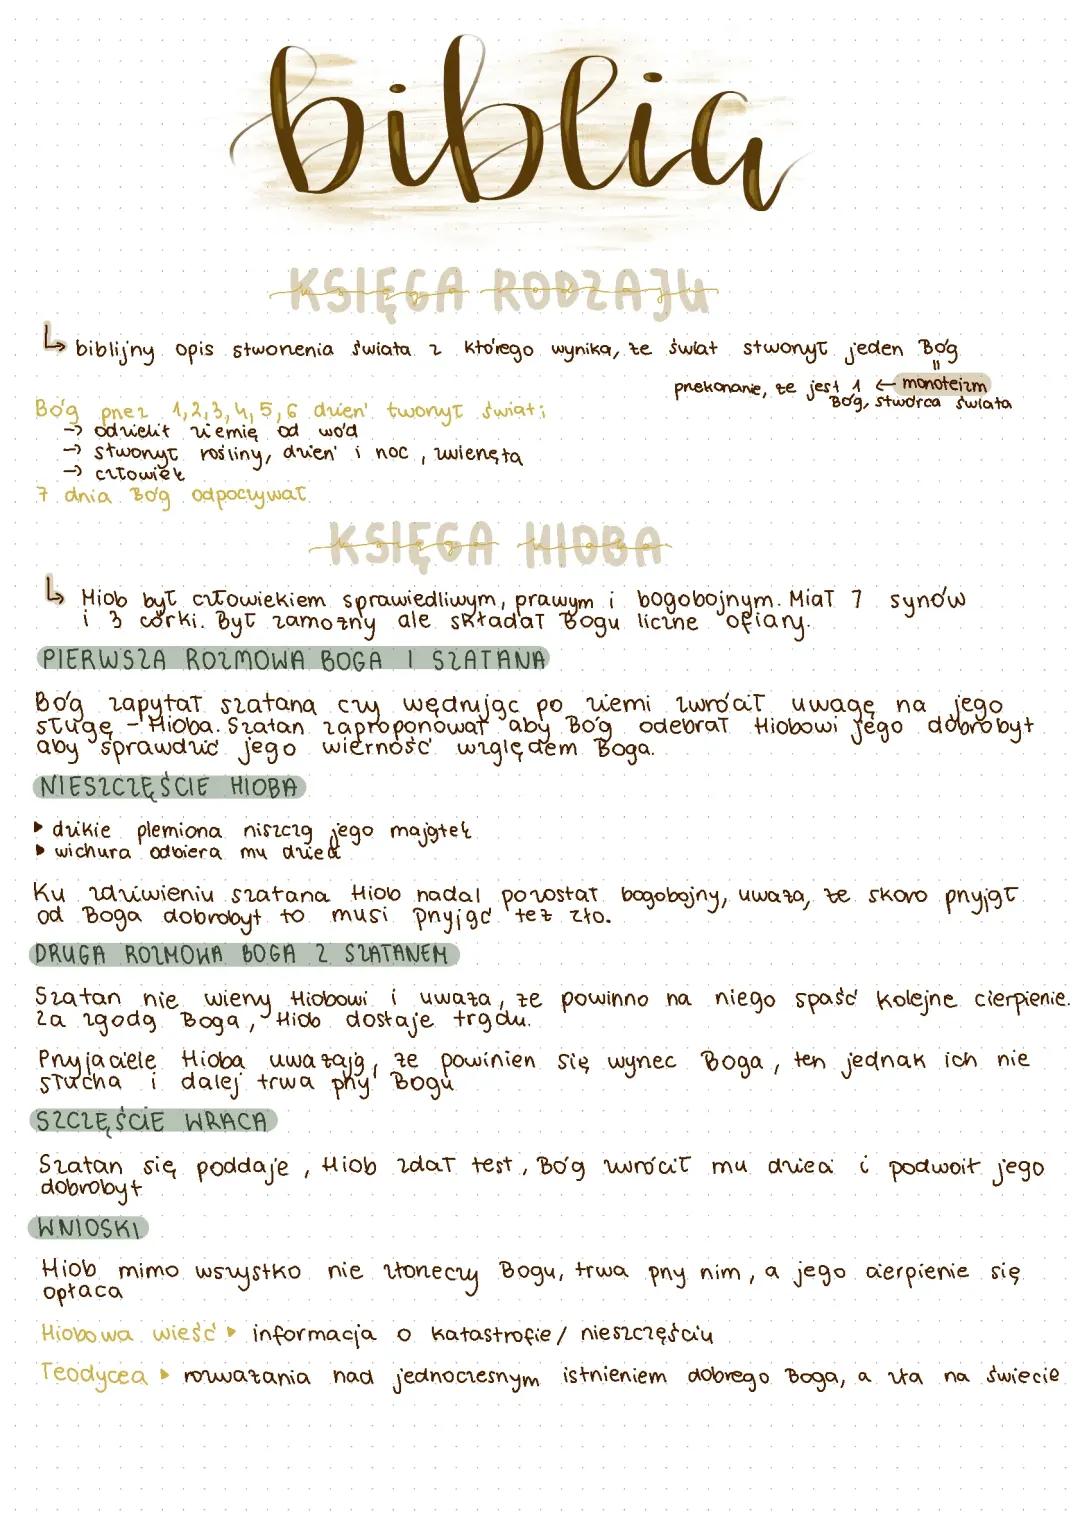 biblia
KSIĘGA RODZAJU
↳ biblijny opis stworzenia świata z którego wynika, że świat stworzył jeden Bóg
=
przekonanie, że jest 1 ← monoteizm
Bóg, stwórca świata
Bóg przez 1,2,3,4,5,6 dzień tworzył świat;
→ oddzielił ziemię od wód
→ stworzył rośliny, dzień i noc, zwierzęta
→ człowiek
7 dnia Bóg odpoczywał.
KSIĘGA HIOBA
↳ Hiob był człowiekiem sprawiedliwym, prawym i bogobojnym. Miał 7 synów
i 3 córki. Był zamożny ale składał Bogu liczne ofiary.
PIERWSZA ROZMOWA BOGA I SZATANA
Bóg zapytał szatana czy wędrując po ziemi zwrócił uwagę na jego
sługę – Hioba. Szatan zaproponował aby Bóg odebrał Hiobowi jego dobrobyt
aby sprawdzić jego wierność względem Boga.
NIESZCZĘŚCIE HIOBA
▸ dzikie plemiona niszczą jego majątek
▸ wichura odbiera mu dzieci
Ku zdziwieniu szatana Hiob nadal pozostał bogobojny, uważa, że skoro przyjął
od Boga dobrobyt to musi przyjąć też zło.
DRUGA ROZMOWA BOGA Z SZATANEM
Szatan nie wierzy Hiobowi i uważa, że powinno na niego spaść kolejne cierpienie.
Za zgodą Boga, Hiob dostaje trądu.
Przyjaciele Hioba uważają, że powinien się wyrzec Boga, ten jednak ich nie
słucha i dalej trwa przy Bogu
SZCZĘŚCIE WRACA
Szatan się poddaje, Hiob zdał test, Bóg zwrócił mu dzieci i podwoił jego
dobrobyt
WNIOSKI
Hiob mimo wszystko nie złorzeczy Bogu, trwa przy nim, a jego cierpienie się
opłaca
Hiobowa wieść ▸ informacja o katastrofie/ nieszczęściu
Teodycea ▸ rozważania nad jednoczesnym istnieniem dobrego Boga, a zła na świecie